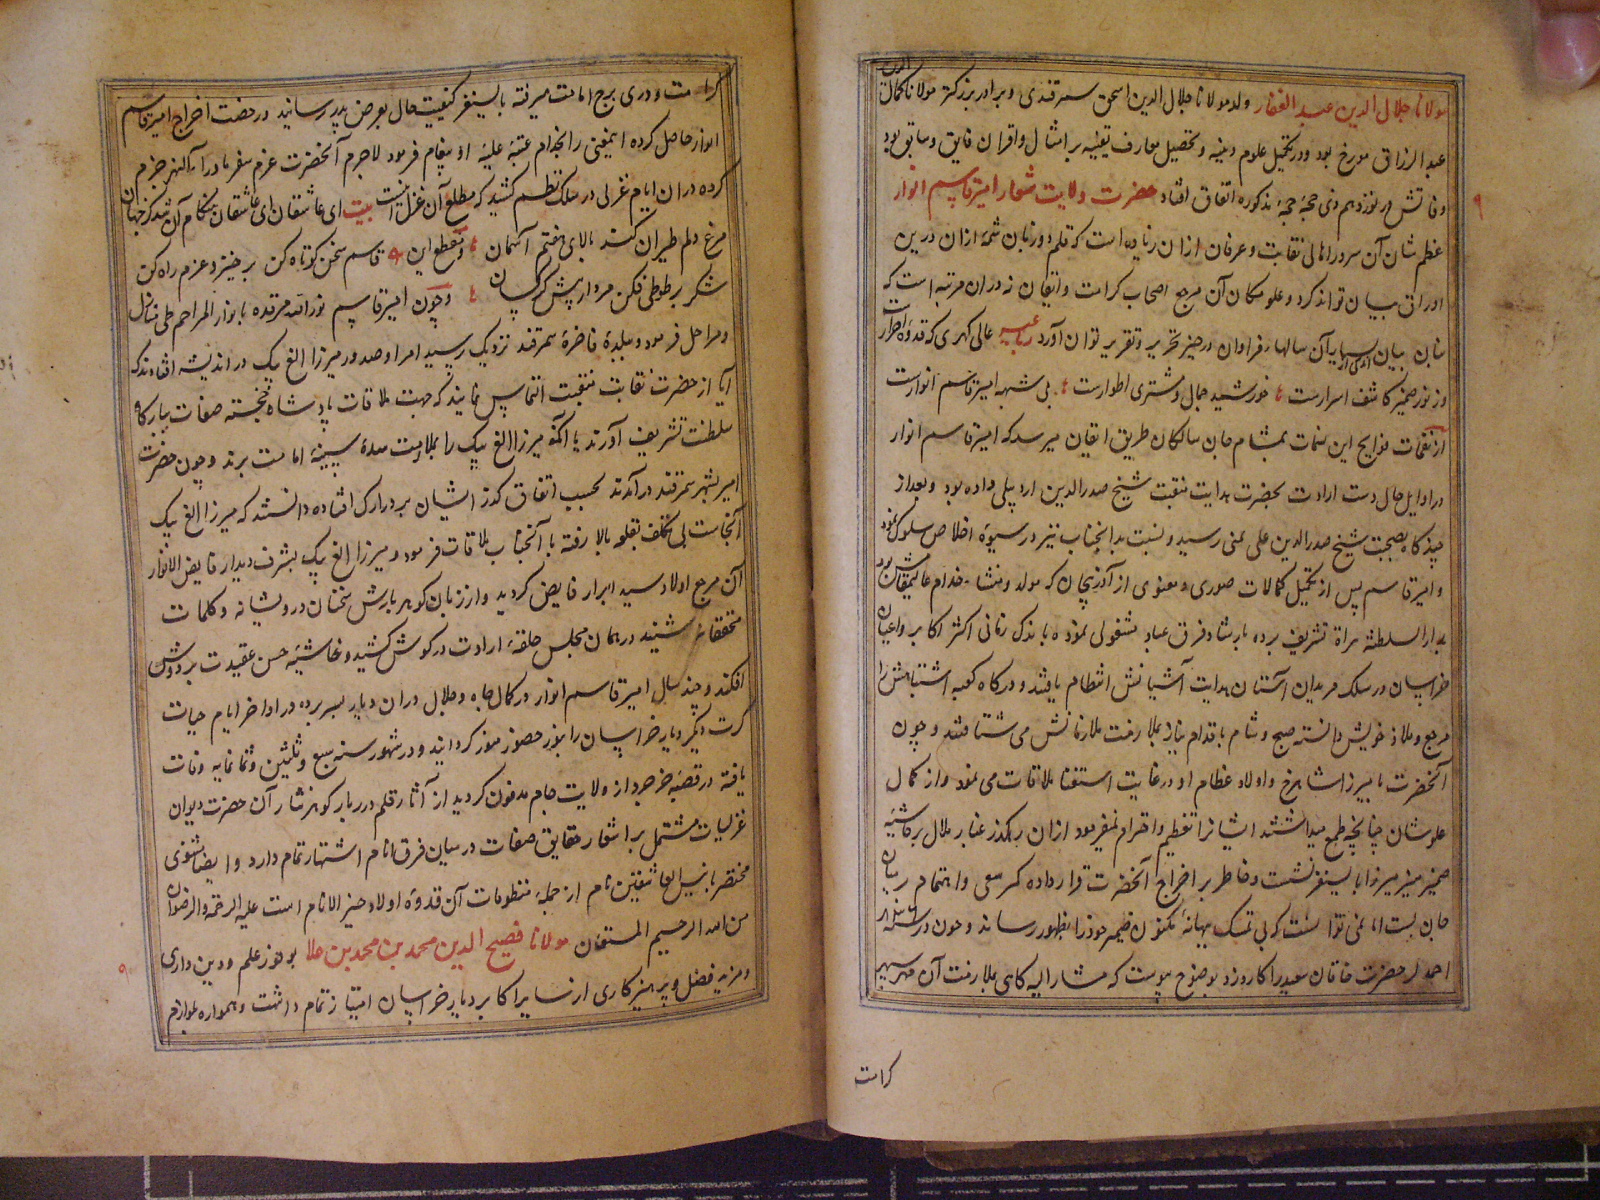 مولانا جلال الدین عبد الغفار ولد مولانا جلال الدین اسحق سمرقندی و برادر بزرکتر مولانا کمال الدین
عبد الرزاق مورخ بود و در تکمیل علوم دینیه و تحصیل معارف یقینیه بر امثال و اقران فایق و سابق بود
وفاتش در نوزدهم ذی حجه حجهٔ مذکوره اتفاق افتاد حضرت ولایت شعار امیر قاسم انوار
عظم شان آن سرور اهالی نقابت و عرفان از ان زیاده است که قلم دو زبان شمهٔ از ان درین
اوراق بیان تواند کرد و علو مکان آن مرجع اصحاب کرامت و ایقان نه در ان مرتبه است که
بنان بیان بسالها فراوان در حیز تحریر و تقریر توان آورد رباعیه عالی کهری که قدوهٔ احرارست
وز نور ضمیر کاشف اسرارست خورشید جمال و مشتری اطوارست بی شبهه امیر قاسم انوارست
از نفحات فوایح این نسمات بمشام جان سالکان طریق ایقان میرسد که امیر قاسم انوار
در اوایل حال دست ارادت بحضرت هدایت منقبت شیخ صدر الدین اردبیلی داده بود و بعد از
چندکاه بصحبت شیخ صدر الدین علی یمنی رسید و نسبت بدانجناب نیز در سیوهٔ اخلاص سلوک نمود
و امیر قاسم پس از تکمیل کمالات صوری و معنوی از آذربیجان که مولد و منشاء خدام عالیمقامش بود
بدار السلطنه هراة تشریف برده بارشاد فرق عباد مشغولی نموده باندک زمانی اکثر اکابر و اعیان
خراسان در سلک مریدان آستان هدایت آشیانش انتظام یافتند و درکاه کعبه اشتباهش را
مرجع و ملاذ خویش دانسته صبح و شام باقدام نیاز بملازمت ملازمانش می شتافتند و چون
آنحضرت با میرزا شاهرخ و اولاد عظام او در غایت استغنا ملاقات می نمود و از کمال
علو شان چنانچه طمع میداشتند ایشانرا تعظیم و احترام نمیفرمود ازان رهکذر غبار ملال بر حاشیهٔ
ضمیر منیر میرزا بایسنغر نشست و خاطر بر اخراج آنحضرت قرار داده کمر سعی و اهتمام بر میان
جان بست اما نمی توانست که بی تمسک بهانهٔ مکنون ضمیر خود را بظهور رساند و چون در سنه
احمد لر حضرت خاقان سعید را کارد زد بوضوح پیوست که مشار الیه کاهی بملازمت آن مهر سپهر
کرامت
کرامت و دری برج امامت میرفته بایسنغر کیفیت حال بعرض پدر رسانید و رخصت اخراج امیر قاسم
انوار حاصل کرده ایمعنی را بخدام عتبهٔ علیهٔ او پیغام فرمود لاجرم آنحضرت عزم سفر ماوراء النهر جزم
کرده در ان ایام غزلی در سلک نظم کشید که مطلع آن غزل اینست بیت ای عاشقان ای عاشقان هنکام آن شد کز جهان
مرغ دلم طیران کند بالای هفتم آسمان و مقطع این قاسم سخن کوتاه کن برخیز و عزم راه کن
شکر بر طوطی فکن مردار پیش کرکسان و چون امیر قاسم نور الله مرقده بانوار المراحم طی منازل
و مراحل فرمود و ببلدهٔ فاخرهٔ سمرقند نزدیک رسید امرا و صدور میرزا الغ بیک در اندیشه افتادند که
آیا از حضرت نقابت منقبت التماس نمایند که جهت ملاقات پادشاه خجسته صفات ببارکاه
سلطنت تشریف آورند یا آنکه میرزا الغ بیک را بملازمت سدهٔ سنیهٔ امامت برند و چون حضرت
امیر بشهر سمرقند درآمدند بحسب اتفاق کذر ایشان بر در ارک افتاده دانستند که میرزا الغ بیک
آنجاست بی تکلف بقلعه بالا رفته با آنجناب ملاقات فرمود و میرزا الغ بیک بشرف دیدار فایض الانوار
آن مرجع اولاد سید ابرار فایض کردید و از زبان کوهر بارش سخنان درویشانه و کلمات
محققانه شنید در همان مجلس حلقهٔ ارادت در کوش کشید و غاشیهٔ حسن عقیدت بر دوش
افکند و چند سال امیر قاسم انوار در کمال جاه و جلال دران دیار بسر برده در اواخر ایام حیات
کرت دیکر دیار خراسان را بنور حضور منور کردانید و در شهور سنه سبع و ثلثین و ثمانمایه وفات
یافته در قصبهٔ خرجرد از ولایت جام مدفون کردید از آثار قلم درربار کوهر نثار آن حضرت دیوان
غزلیات مشتمل بر اشعار حقایق صفات در میان فرق انام اشتهار تمام دارد و ایضا مثنوی
مختصر بانیس العاشقین نام از جمله منظومات آن قدوهٔ اولاد خیر الانام است علیه الرحمة و الرضوان
من الله الرحیم المستعان مولانا فصیح الدین محمد بن محمد بن علا بوفور علم و دین داری
و مزید فضل و پرهیزکاری از سایر اکابر دیار خراسان امتیاز تمام داشت و همواره بلوازم